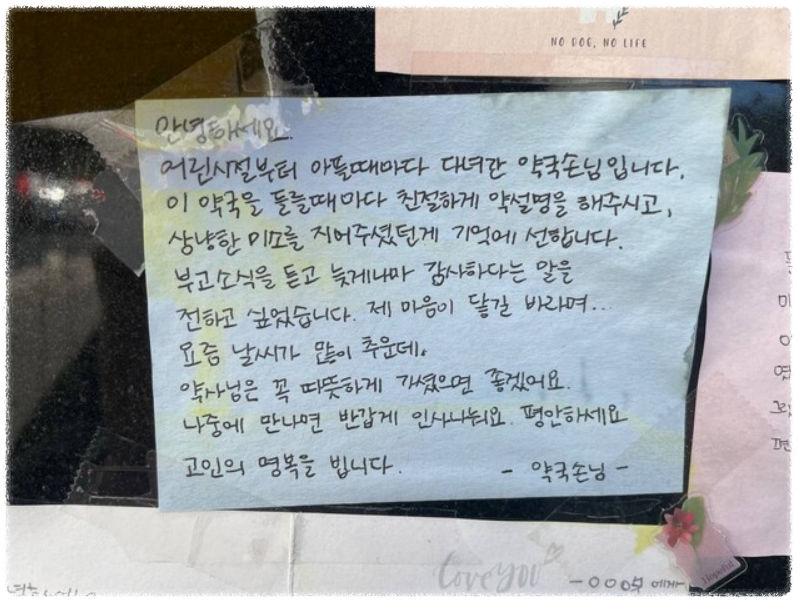 NO DOG, NO LIFE
안녕하세요.
어린시절부터 아플때마다 다녀간 약국손님입니다.
이 약국을 들를때마다 친절하게 약설명을 해주시고,
상냥한 미소를 지어주셨던게 기억에 선합니다.
부고소식을 듣고 늦게나마 감사하다는 말을
전하고 싶었습니다. 제 마음이 닿길 바라며...
요즘 날씨가 많이 추운데,
약사님은 꼭 따뜻하게 가셨으면 좋겠어요.
나중에 만나면 반갑게 인사나눠요. 평안하세요
고인의 명복을 빕니다.
- 약국손님 -
love you
Hopeful